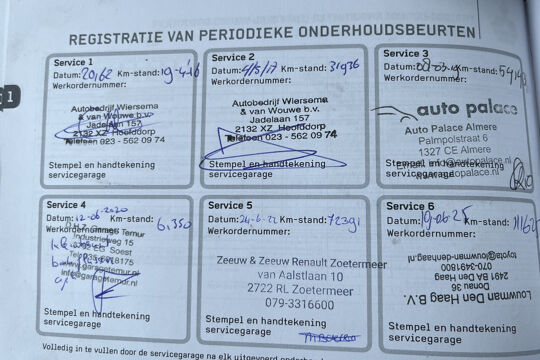 REGISTRATIE VAN PERIODIEKE ONDERHOUDSBEURTEN
Service 1
Datum: 20,62 Km-stand: 19-4-16
Werkordernummer:
Autobedrijf Wiersema
& van Wouwe b.v.
Jadelaan 157
2132 XZ Hoofddorp
Telefoon 023 - 562 09 74
Stempel en handtekening
servicegarage
Service 2
Datum: 4/5/17 Km-stand: 31936
Werkordernummer:
Autobedrijf Wiersema
& van Wouwe b.v.
Jadelaan 157
2132 XZ Hoofddorp
Telefoon 023 - 562 09 74
Stempel en handtekening
servicegarage
Service 3
Datum: Km-stand:
Werkordernummer:
auto palace
Auto Palace Almere
Palmpolstraat 6
1327 CE Almere
Stempel en handtekening
servicegarage
Service 4
Datum: 12-06-2020 Km-stand: 61,350
Werkordernummer:
Industrieweg 15
Soest
info@garagetemur.nl
Stempel en handtekening
servicegarage
Service 5
Datum: 24-6-22 Km-stand: 72391
Werkordernummer:
Zeeuw & Zeeuw Renault Zoetermeer
van Aalstlaan 10
2722 RL Zoetermeer
079-3316600
Stempel en handtekening
servicegarage
Service 6
Datum: 19-06-25 Km-stand:
Werkordernummer:
Louwman Den Haag B.V.
Donau 36
2491 BA Den Haag
070-3491600
Stempel en handtekening
servicegarage
Volledig in te vullen door de servicegarage na elk uitgevoerd
1